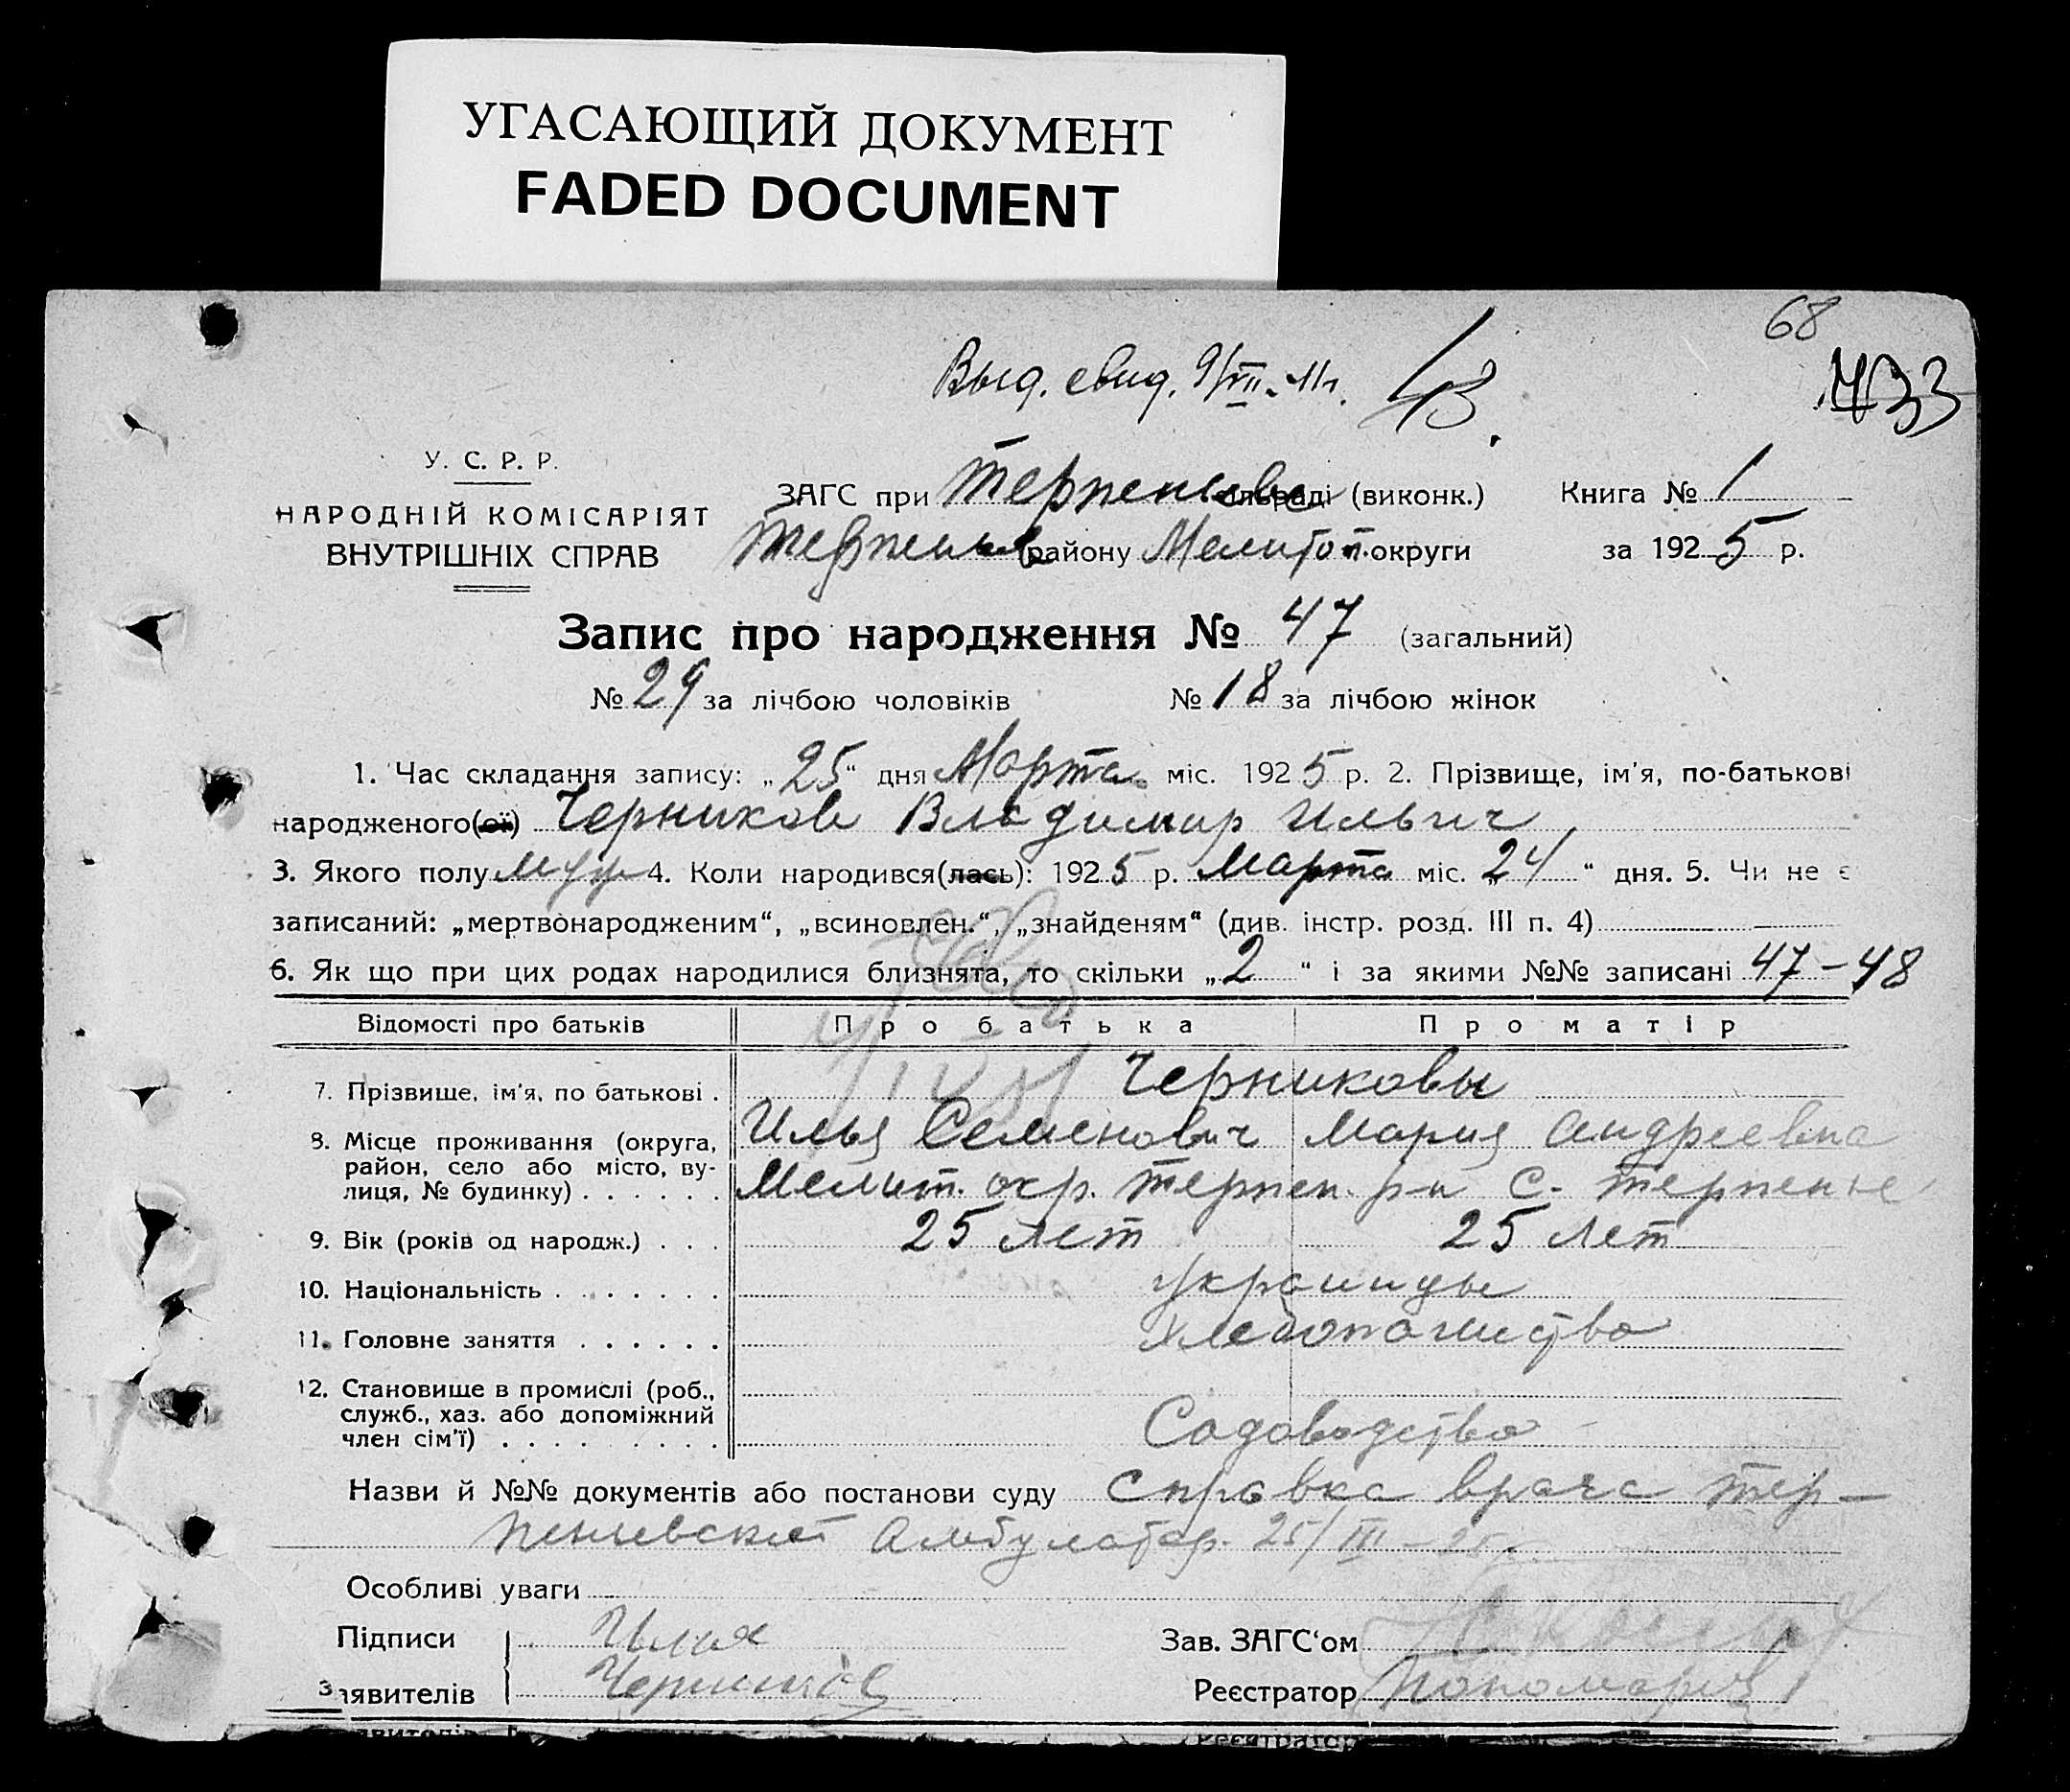 УГАСАЮЩИЙ ДОКУМЕНТ
FADED DOCUMENT
68
Выд. свид. 9/VII-41г.
733
У. С. Р. Р.
НАРОДНІЙ КОМІСАРІЯТ
ВНУТРІШНІХ СПРАВ
ЗАГС при Терпеньевс сільраді (виконк.) Книга № 1
Терпеньев району Мелитоп. округи за 1925 р.
Запис про народження № 47 (загальний)
№ 29 за лічбою чоловіків № 18 за лічбою жінок
1. Час складання запису: „25“ дня Марта міс. 1925 р. 2. Прізвище, ім'я, по-батькові
народженого(ої) Черников Владимир Ильич
3. Якого полу муж 4. Коли народився(лась): 1925 р. Марта міс. „24“ дня. 5. Чи не є
записаний: „мертвонародженим“, „всиновлен.“, „знайденям“ (див. інстр. розд. III п. 4)
6. Як що при цих родах народилися близнята, то скільки „2“ і за якими №№ записані 47-48
Відомості про батьків Про батька Про матір
7. Прізвище, ім'я, по батькові . Черниковы
Илья Семенович Мария Андреевна
8. Місце проживання (округа,
район, село або місто, ву-
лиця, № будинку) . . . . . . Мелит. окр. Терпен. р-н С. Терпенье
9. Вік (років од народж.) . . . 25 лет 25 лет
10. Національність . . . . . . . украинцы
11. Головне заняття . . . . . . Хлебопашество
12. Становище в промислі (роб.,
служб., хаз. або допоміжний
член сім'ї) . . . . . . . . . Садоводство
Назви й №№ документів або постанови суду Справка врача Тер-
пеньевской Амбулатор. 25/III-25г.
Особливі уваги
Підписи Илья Зав. ЗАГС'ом
заявителів Черников Реєстратор Пономарев
явителів Реєстратор